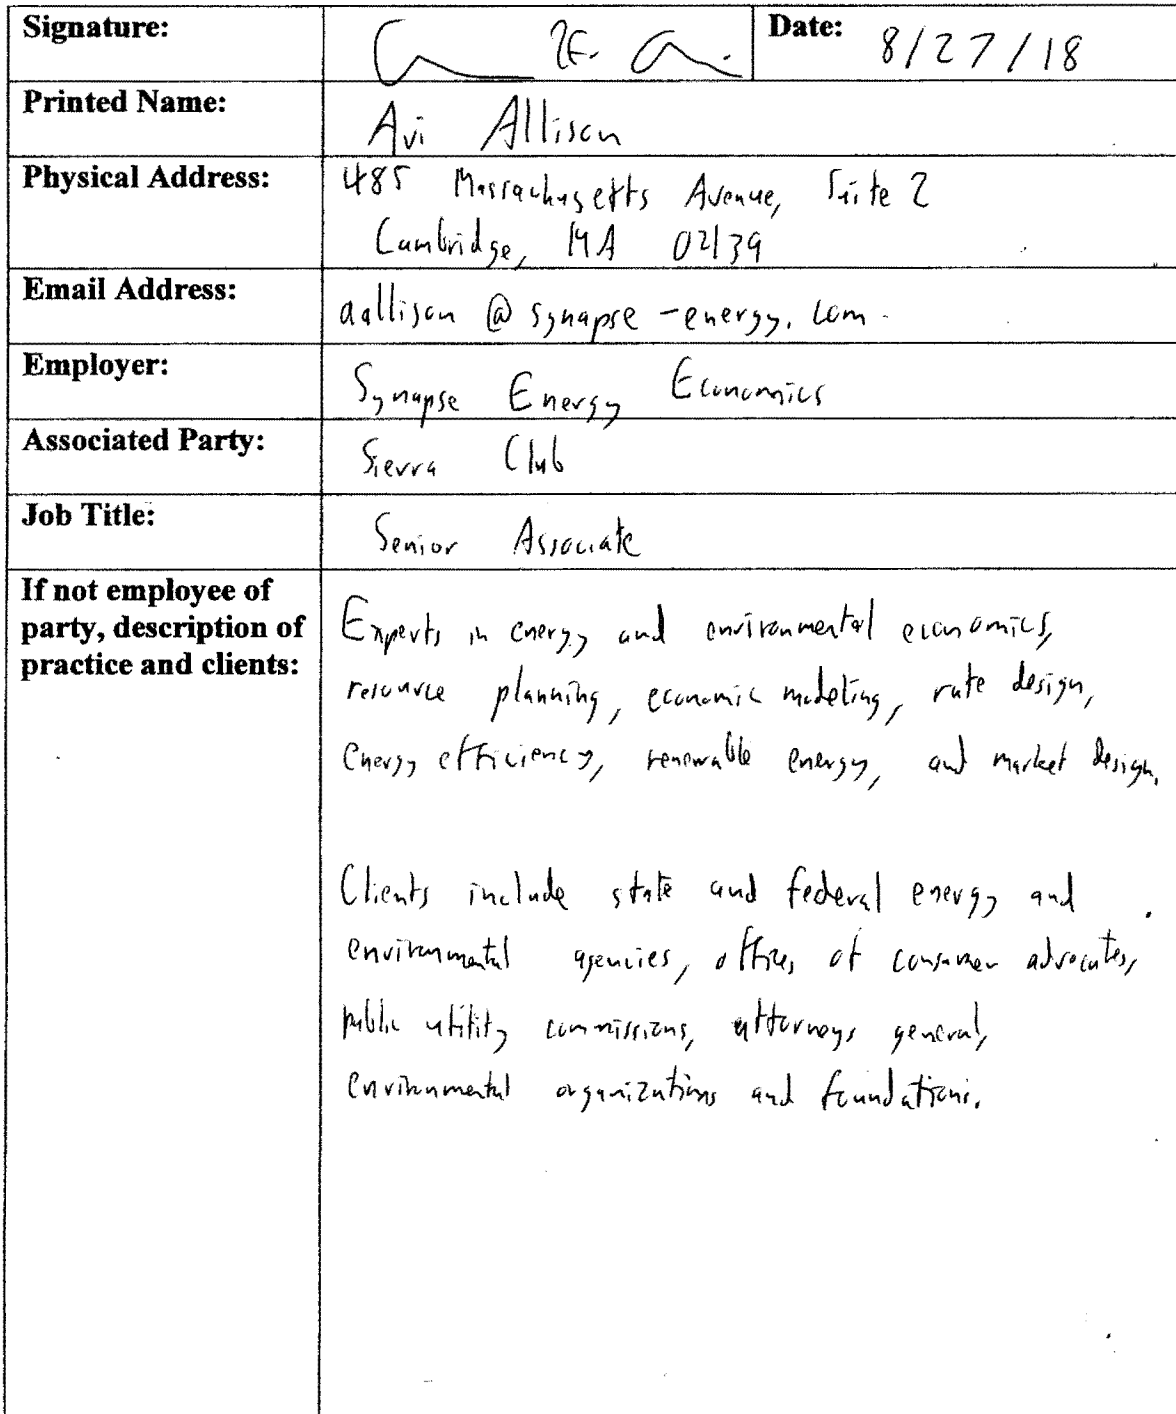 Signature: Date: 8/27/18
Printed Name: Avi Allison
Physical Address: 485 Massachusetts Avenue, Suite 2
Cambridge, MA 02139
Email Address: aallison@synapse-energy.com
Employer: Synapse Energy Economics
Associated Party: Sierra Club
Job Title: Senior Associate
If not employee of
party, description of
practice and clients:
Experts in energy and environmental economics,
resource planning, economic modeling, rate design,
energy efficiency, renewable energy, and market design.
Clients include state and federal energy and
environmental agencies, offices of consumer advocates,
public utility commissions, attorneys general,
environmental organizations and foundations.